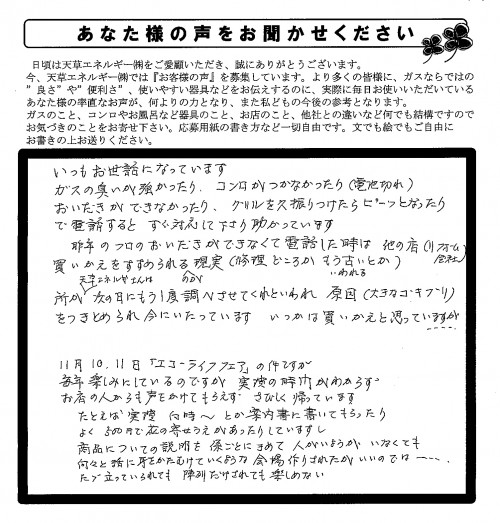 あなた様の声をお聞かせください
日頃は天草エネルギー㈱をご愛顧いただき、誠にありがとうございます。
今、天草エネルギー㈱では『お客様の声』を募集しています。より多くの皆様に、ガスならではの
”良さ”や”便利さ”、使いやすい器具などをお伝えするのに、実際に毎日お使いいただいている
あなた様の率直なお声が、何よりの力となり、また私どもの今後の参考となります。
ガスのこと、コンロやお風呂など器具のこと、お店のこと、他社との違いなど何でも結構ですので
お気づきのことをお寄せ下さい。応募用紙の書き方など一切自由です。文でも絵でもご自由に
お書きの上お送りください。
いつもお世話になっています
ガスの臭いが強かったり、コンロがつかなかったり(電池切れ)
おいだきができなかったり、グリルを久振りつけたらピーッとなったり
で電話すると すぐ対応して下さり助かっています
昨年のフロのおいだきができなくて電話した時は 他の店(リフォーム会社)
買いかえをすすめられる現実(修理どころか もう古いとか)
天草エネルギーさんは のが いわれる
所が 次の日にもう1度調べさせてくれといわれ 原因(大きなゴキブリ)
をつきとめられ今にいたっています いつかは買いかえと思っていますが
‥‥‥
11月10、11日「エコーライフフェア」の件ですが
毎年楽しみにしているのですが 実際の時内がわからず
お店の人からも声をかけてもらえず さびしく帰っています
たとえば実際 何時〜 とか案内書に書いてもらったり
よく500円で花の寄せうえがあったりしていますし
商品についての説明を 係ごとにきめて 人がいようが いなくても
何々と話に耳をかたむけていくような 会場作りされたがいいのでは ーーー、
ただ立っていられても 陳列だけされても楽しめない